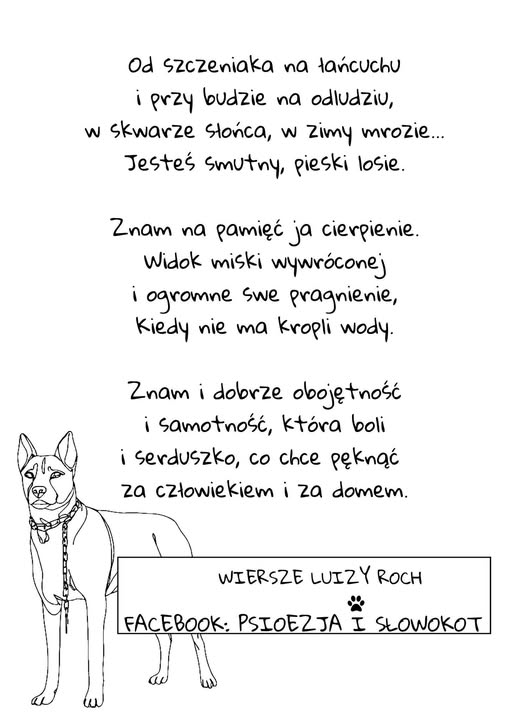 Od szczeniaka na łańcuchu
i przy budzie na odludziu,
w skwarze słońca, w zimy mrozie...
Jesteś smutny, pieski losie.
Znam na pamięć ja cierpienie.
Widok miski wywróconej
i ogromne swe pragnienie,
kiedy nie ma kropli wody.
Znam i dobrze obojętność
i samotność, która boli
i serduszko, co chce pęknąć
za człowiekiem i za domem.
WIERSZE LUIZY ROCH
FACEBOOK: PSIOEZJA I SŁOWOKOT